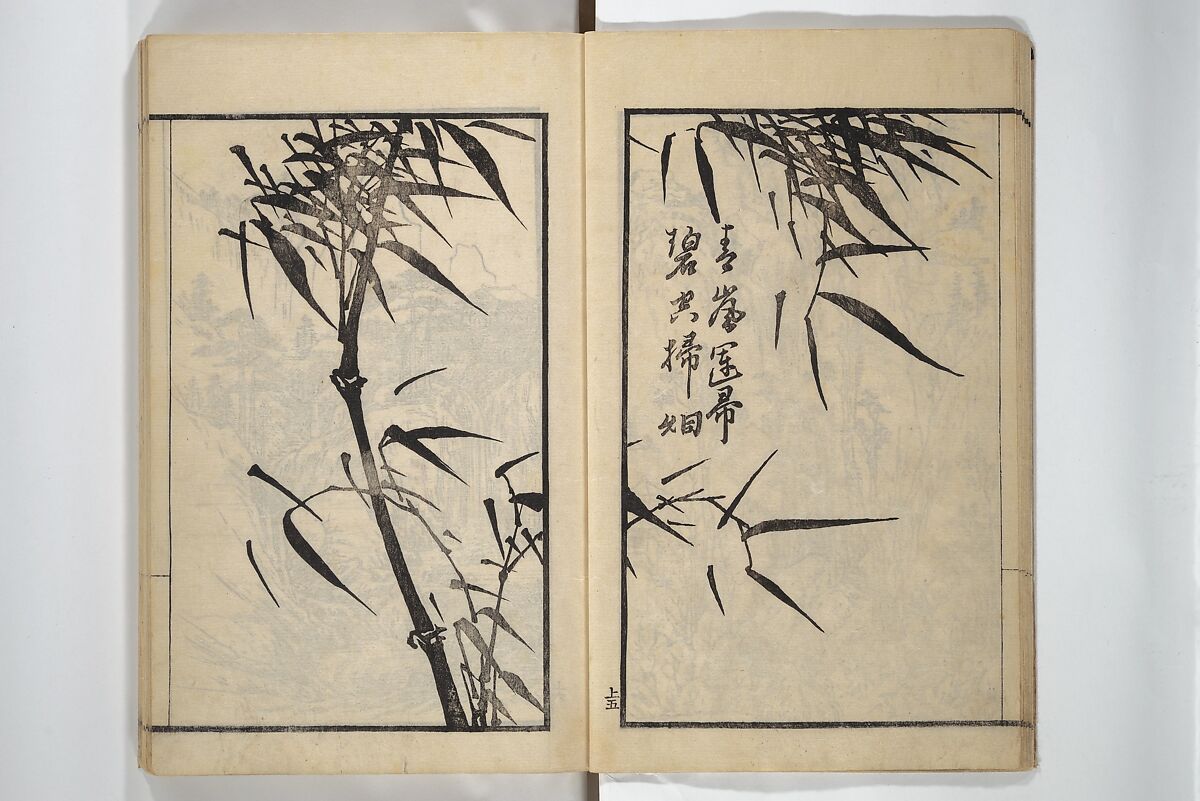 青嵐運帚
碧空掃烟
上五